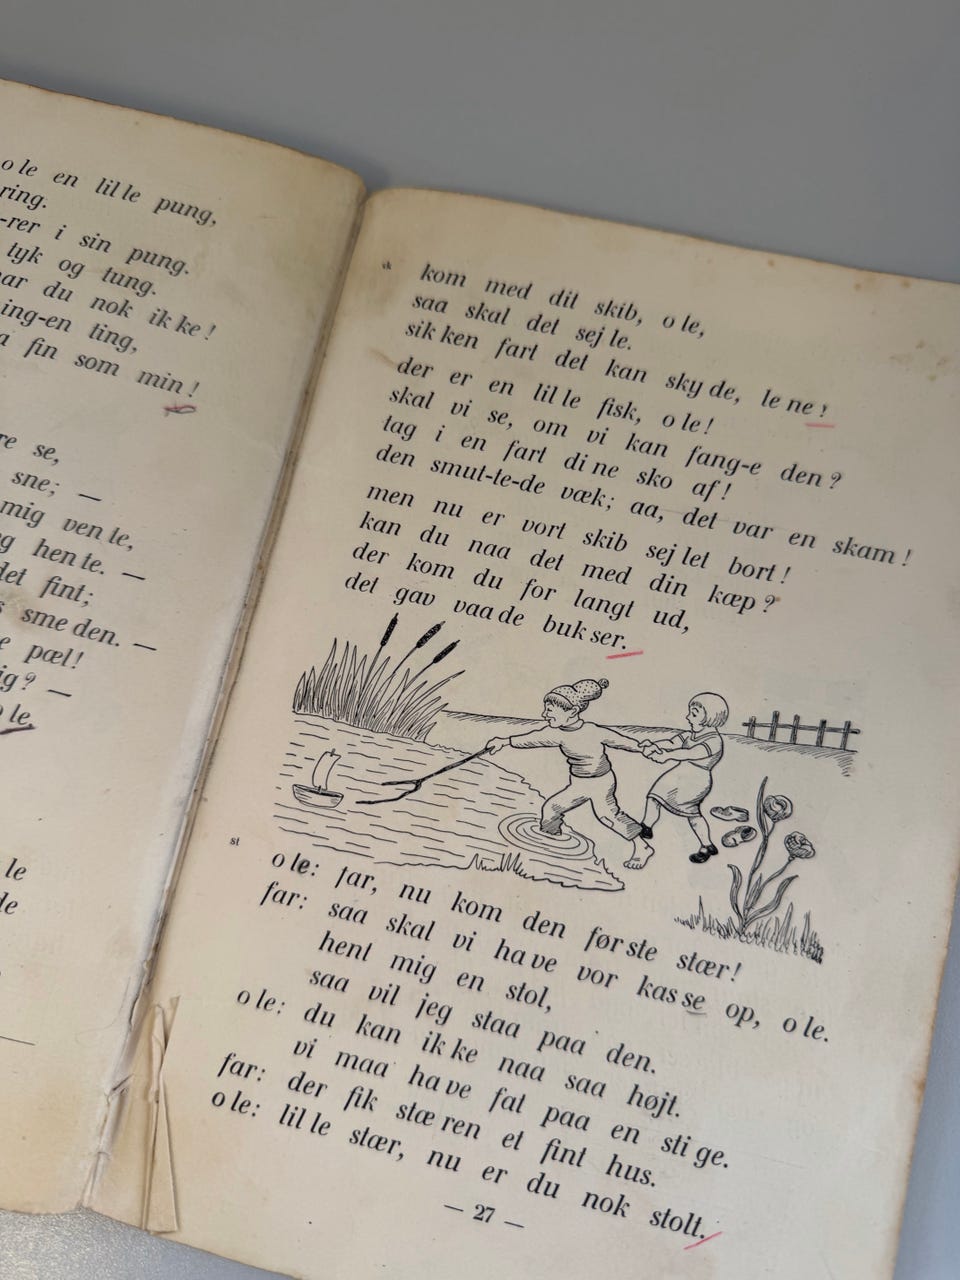 o le en lil le pung,
ring.
-rer i sin pung.
tyk og tung.
du nok ik ke!
ing-en ting,
fin som min!
se,
sne; —
mig ven te,
hen te. —
fint;
sme den. —
pæl!
ig? —
le
sk
kom med dit skib, o le,
saa skal det sej le.
sik ken fart det kan sky de, le ne!
der er en lil le fisk, o le!
skal vi se, om vi kan fang-e den?
tag i en fart di ne sko af!
den smut-te-de væk; aa, det var en skam!
men nu er vort skib sej let bort!
kan du naa det med din kæp?
der kom du for langt ud,
det gav vaa de buk ser.
st
o le: far, nu kom den før ste stær!
far: saa skal vi ha ve vor kas se op, o le.
hent mig en stol,
saa vil jeg staa paa den.
o le: du kan ik ke naa saa højt.
vi maa ha ve fat paa en sti ge.
far: der fik stæ ren et fint hus.
o le: lil le stær, nu er du nok stolt.
— 27 —